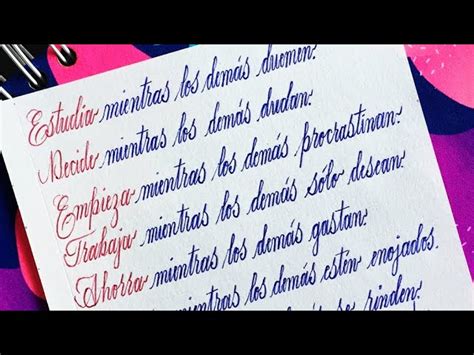 Estudia mientras los demás duermen.
Decide mientras los demás dudan.
Empieza mientras los demás procrastinan.
Trabaja mientras los demás sólo desean.
Ahorra mientras los demás gastan.
mientras los demás estén enojados.
se rinden.